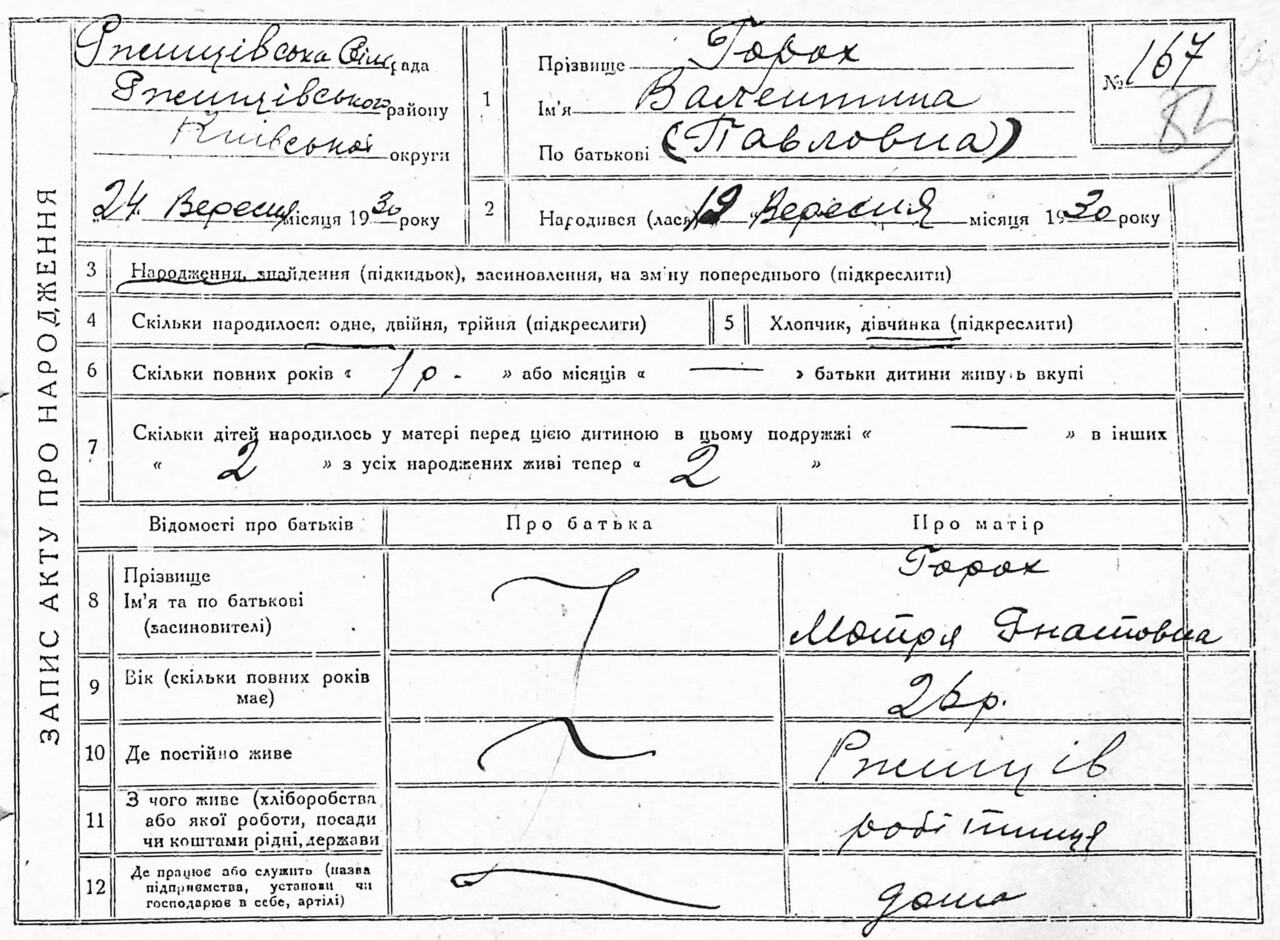 ЗАПИС АКТУ ПРО НАРОДЖЕННЯ
Ржищівська Сільрада
Ржищівського району
Київської округи
24 Вересня місяця 1930 року
1
Прізвище Горох
Ім'я Валентина
По батькові (Павловна)
№ 167
2
Народився (лася) 19 Вересня місяця 1930 року
3 Народження, знайдення (підкидьок), засиновлення, на зм'ну попереднього (підкреслити)
4 Скільки народилося: одне, двійня, трійня (підкреслити)
5 Хлопчик, дівчинка (підкреслити)
6 Скільки повних років « 1 р. » або місяців « — » батьки дитини живуть вкупі
7 Скільки дітей народилось у матері перед цією дитиною в цьому подружжі « — » в інших
« 2 » з усіх народжених живі тепер « 2 »
Відомості про батьків Про батька Про матір
8 Прізвище Горох
Ім'я та по батькові
(засиновителі) Мотря Гнатовна
9 Вік (скільки повних років
має) 26 р.
10 Де постійно живе Ржищів
11 З чого живе (хліборобства
або якої роботи, посади робітниця
чи коштами рідні, держави
12 Де працює або служить (назва
підприємства, установи чи дома
господарює в себе, артілі)